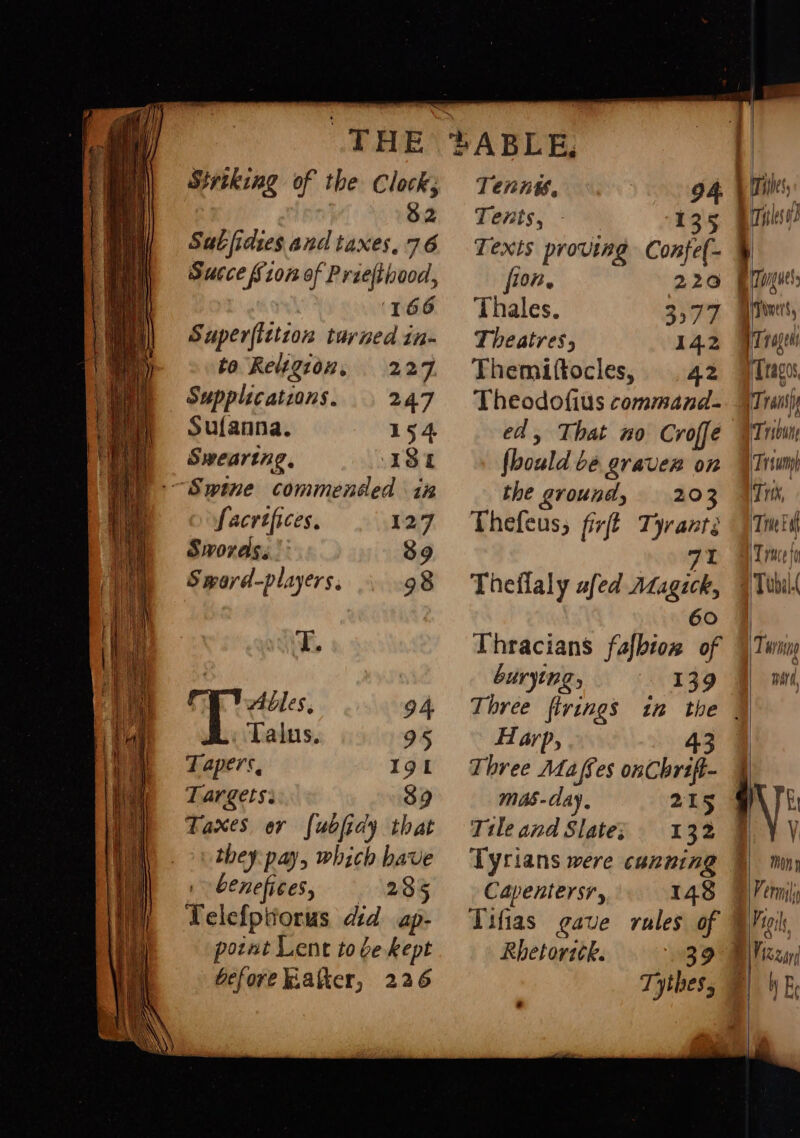 THE TABLE.
Striking of the Clock,
82
Subſidies and taxes, 76
Succeſſion of Prieſthood,
166
Superſtition turned in-
to Religion, 227
Supplications. 247
Suſanna. 154
Swearing. 181
Swine commended in
ſacrifices. 127
Swords. 89
Sword-players. 98
T.
TAbles, 94
Talus. 95
Tapers, 191
Targets. 89
Taxes or ſubſidy that
they pay, which have
benefices, 285
Teleſphorus did ap-
point Lent to be kept
before Eaſter, 226
Tennis. 94
Tents, 135
Texts proving Confeſ-
ſion. 220
Thales. 3,77
Theatres, 142
Themiſtocles, 42
Theodoſius command-
ed, That no Croſſe
ſhould be graven on
the ground, 203
Theſeus, firſt Tyrant;
71
Theſſaly uſed Magick,
60
Thracians faſhion of
burying, 139
Three ſtrings in the
Harp, 43
Three Maſſes on Chriſt-
mas-day. 215
Tile and Slate; 132
Tyrians were cunning
Capentersr, 148
Tiſias gave rules of
Rhetorick. 39
Tythes,